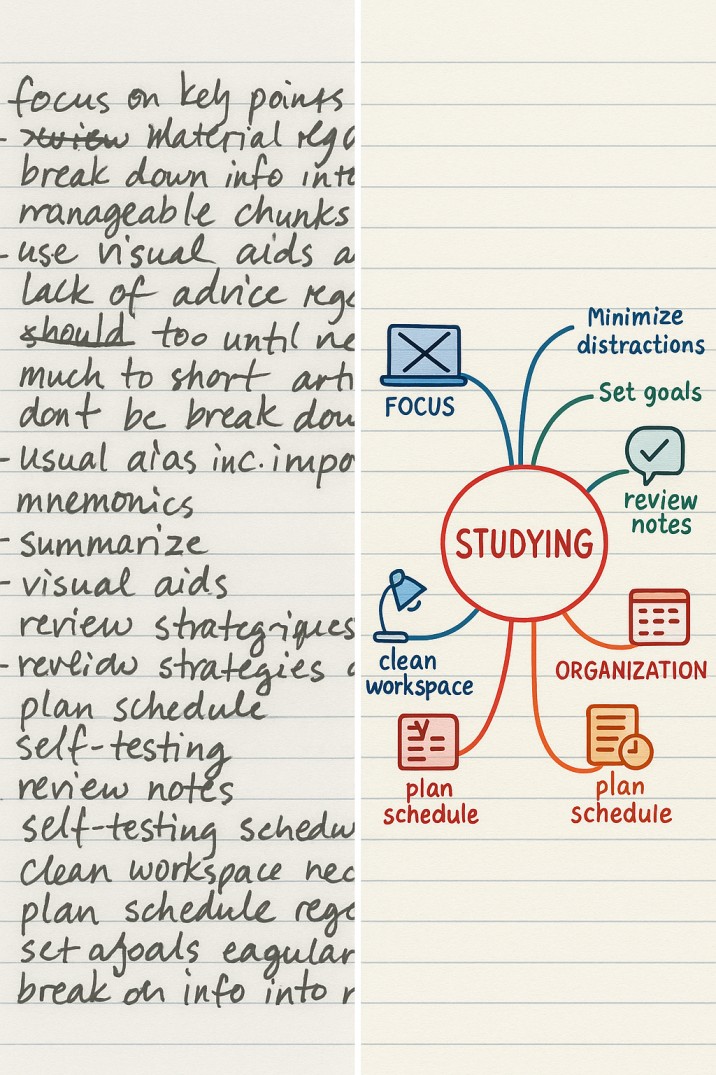 focus on key points
- review material reg
break down info int
manageable chunks
- use visual aids a
lack of advice reg
should too until ne
much to short arti
dont be break dow
- usual aias inc. impo
mnemonics
- summarize
- visual aids
review strategriques
- revlidw strategies
plan schedule
self-testing
review notes
self-testing schedu
clean workspace nec
plan schedule reg
set agoals eagular
break on info into
Minimize
distractions
FOCUS
Set goals
review
notes
STUDYING
clean
workspace
ORGANIZATION
plan
schedule
plan
schedule